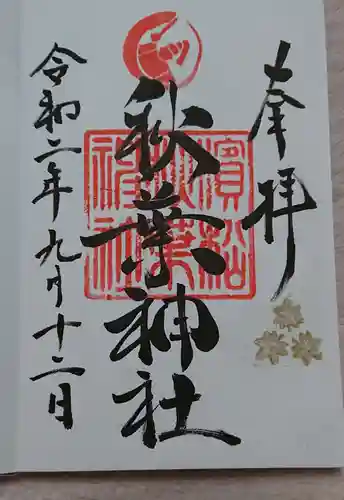 奉拝
秋葉神社
濱松
秋葉
神社
令和二年九月十二日